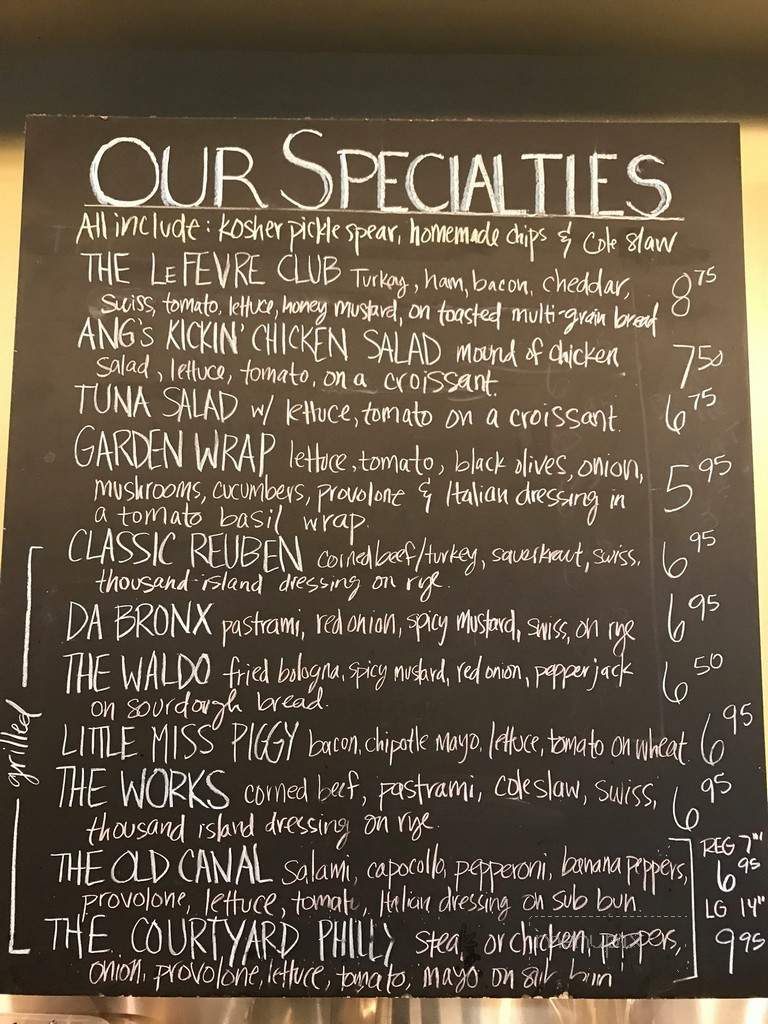 OUR SPECIALTIES
All include: kosher pickle spear, homemade chips & Cole slaw
THE LEFEVRE CLUB Turkey, ham, bacon, cheddar, 8 75
Swiss, tomato, lettuce, honey mustard, on toasted multi-grain bread
ANG'S KICKIN' CHICKEN SALAD mound of chicken 7 50
salad, lettuce, tomato, on a croissant.
TUNA SALAD w/ lettuce, tomato on a croissant. 6 75
GARDEN WRAP lettuce, tomato, black olives, onion, 5 95
mushrooms, cucumbers, provolone & Italian dressing in
a tomato basil wrap.
CLASSIC REUBEN corned beef/turkey, sauerkraut, swiss, 6 95
thousand island dressing on rye.
DA BRONX pastrami, red onion, spicy mustard, swiss, on rye 6 95
THE WALDO fried bologna, spicy mustard, red onion, pepper jack 6 50
on sourdough bread.
grilled
LITTLE MISS PIGGY bacon, chipotle mayo, lettuce, tomato on wheat. 6 95
THE WORKS corned beef, pastrami, cole slaw, swiss, 6 95
thousand island dressing on rye.
THE OLD CANAL salami, capocollo, pepperoni, banana peppers, REG 7" 6 95
provolone, lettuce, tomato, Italian dressing on sub bun. LG 14"
THE COURTYARD PHILLY steak or chicken, peppers, 9 95
onion, provolone, lettuce, tomato, mayo on sub bun